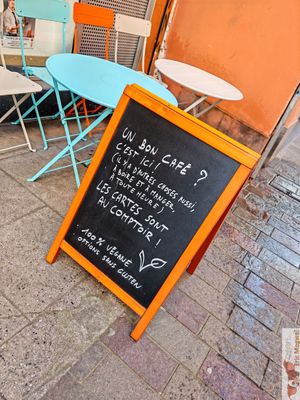 UN BON CAFÉ ?
C'EST ICI !
(IL Y A D'AUTRES CHOSES AUSSI,
À BOIRE ET À MANGER,
À TOUTE HEURE)
LES CARTES SONT
AU COMPTOIR !
100% VÉGANE
OPTIONS SANS GLUTEN